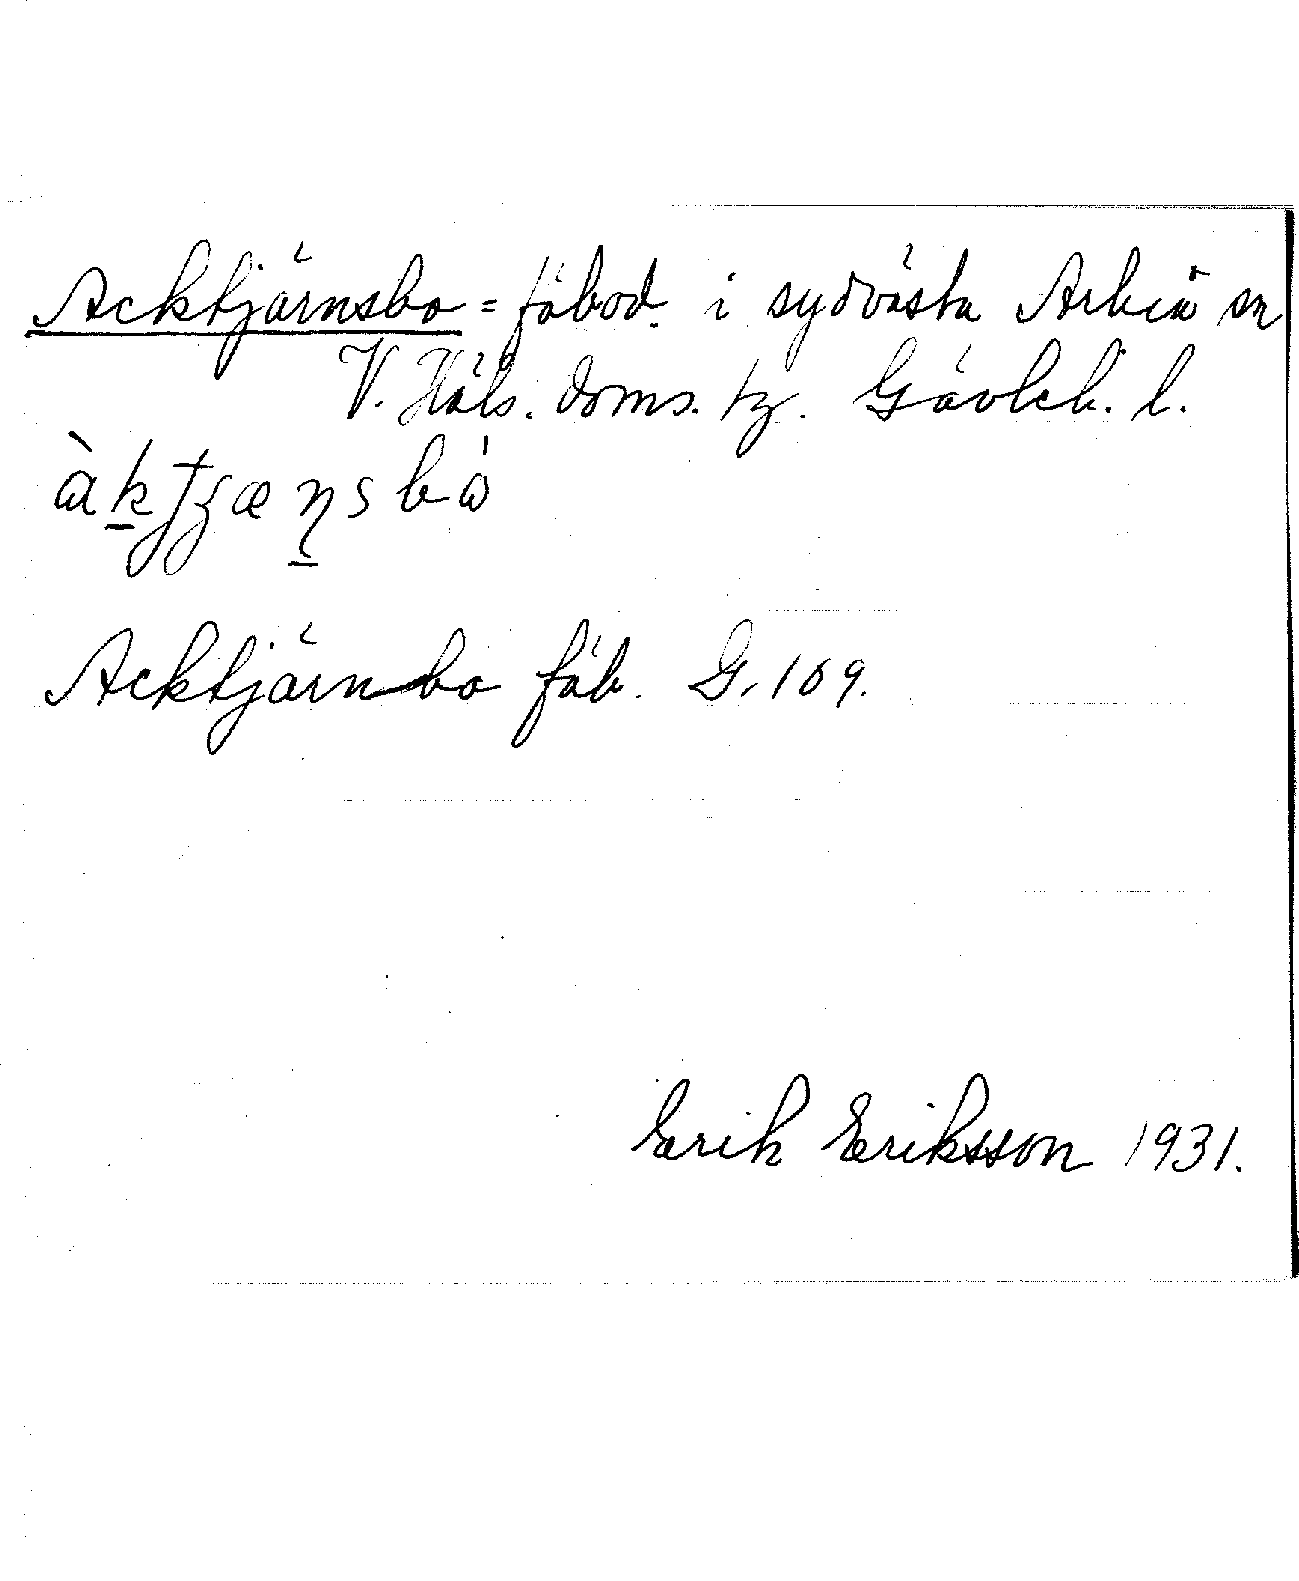 Acktjärnsbo = fäbod. i sydvästa Arbrå sn
V. Häls. doms. tg. Gävleb. l.
Acktjärnbo fäb. G. 109.
Erik Eriksson 1931.